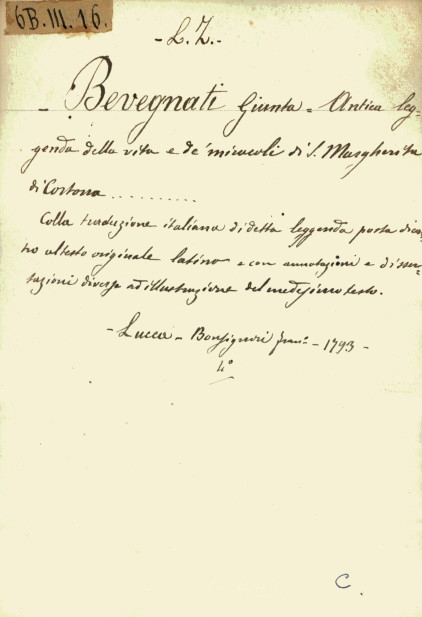 6B. III. 16.
- L. Z. -
- Bevegnati Giunta = Antica leg-
genda della vita e de' miracoli di S. Margherita
di Cortona . . . . . . . . . .
Colla traduzione italiana di detta leggenda posta di con-
tro al testo originale latino e con annotazioni e disser-
tazioni diverse ad illustrazione del medesimo testo.
- Lucca - Bonsignori - 1793 -
4°
C